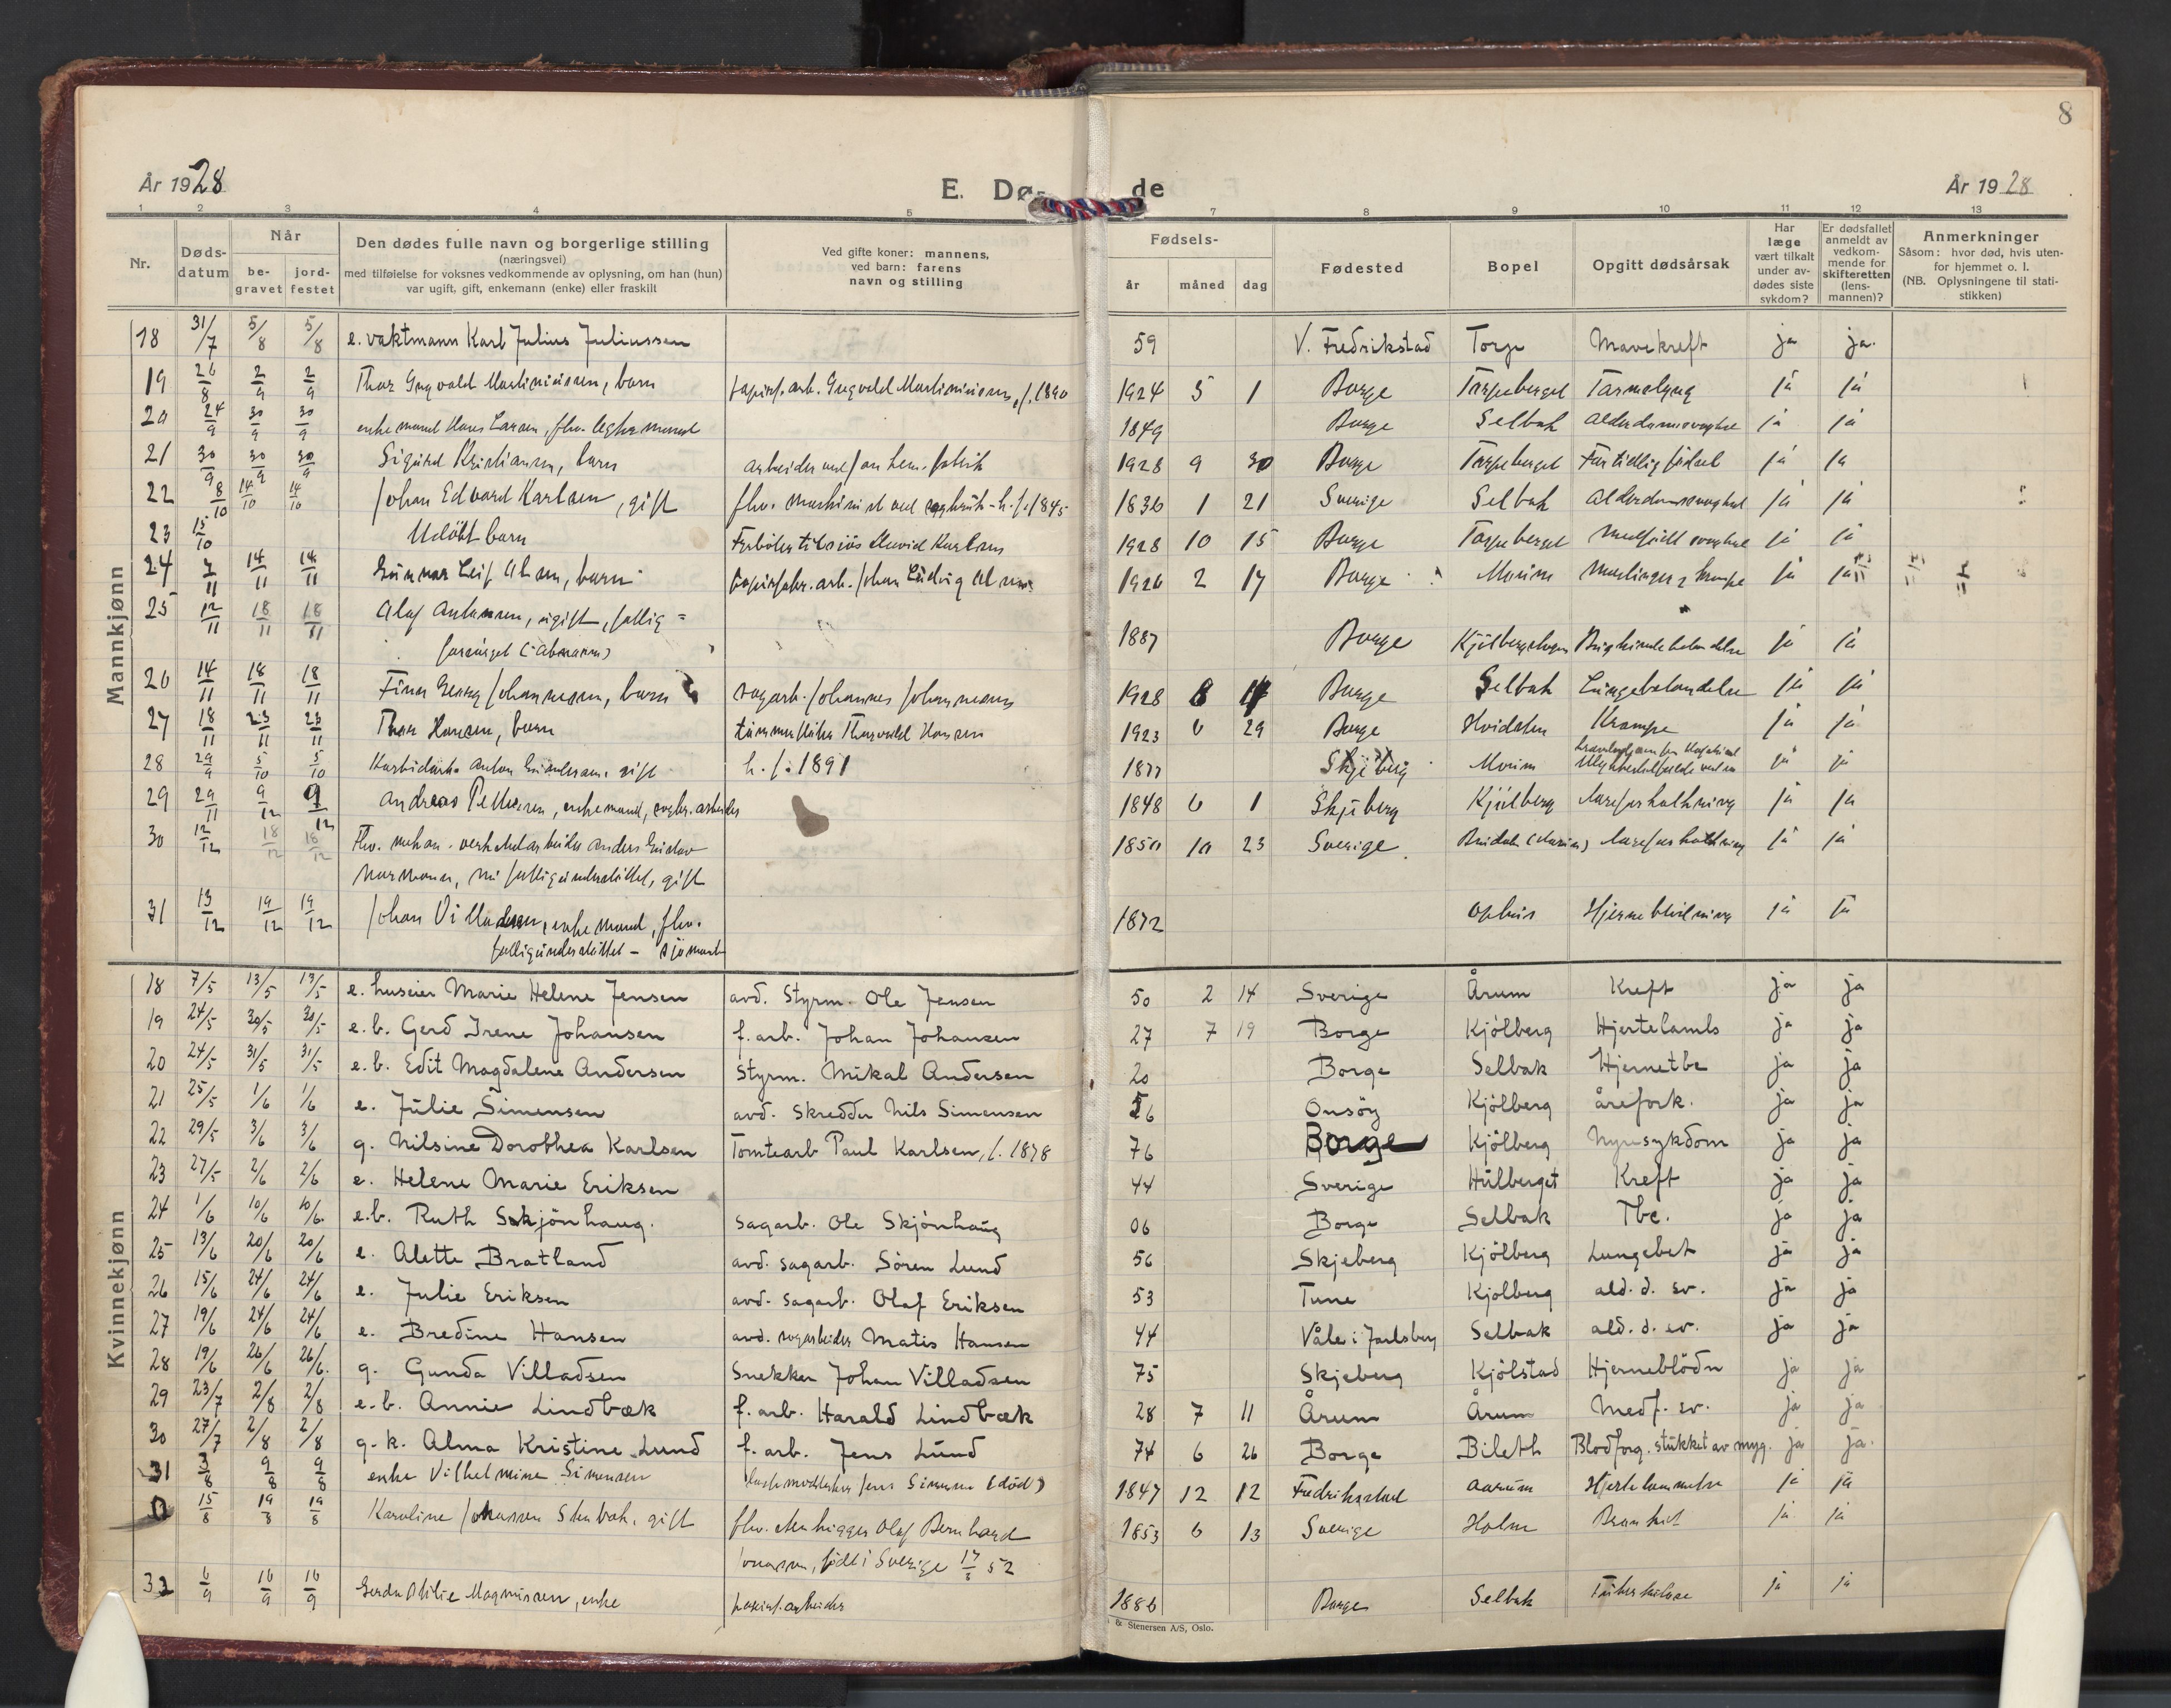 8
År 1928
E. Dø
de
År 1928
1 2 3 4 5 7 8 9 10 11 12 13
Nr.
Døds-
datum
Når
be-
gravet
jord-
festet
Den dødes fulle navn og borgerlige stilling
(næringsvei)
med tilføielse for voksnes vedkommende av oplysning, om han (hun)
var ugift, gift, enkemann (enke) eller fraskilt
Ved gifte koner: mannens,
ved barn: farens
navn og stilling
Fødsels-
år måned dag
Fødested
Bopel
Opgitt dødsårsak
Har
læge
vært tilkalt
under av-
dødes siste
sykdom?
Er dødsfallet
anmeldt av
vedkom-
mende for
skifteretten
(lens-
mannen)?
Anmerkninger
Såsom: hvor død, hvis uten-
for hjemmet o. l.
(NB. Oplysningene til stati-
stikken)
Mannkjønn
18 31/7 5/8 5/8 e. vaktmann Karl Julius Juliussen 59 V. Fredrikstad Torp Mavekreft ja ja.
19 26/8 2/9 2/9 Thor Ingvald Martiniussen, barn papirf. arb. Ingvald Martiniussen, f. 1890 1924 5 1 Borge Torpeberget Tarmslyng ja ja
20 24/9 30/9 30/9 enkemand Hans Larsen, fhv. 1849 Borge Selbak ja ja
21 30/9 30/9 30/9 Sigurd Kristiansen, barn arbeider ved 1928 9 30 Borge Torpeberget For tidlig födsel ja ja
22 8/10 14/10 14/10 Johan Edvard Karlsen, gift fhv. maskinist ved f. 1845 1836 1 21 Sverige Selbak Alderdomssvaghed ja ja
23 15/10 Udöbt barn Karlsen 1928 10 15 Borge Torpeberget Medfödt svaghet ja ja
24 11 14/11 14/11 Gunnar Leif barn Papirfabr. arb. Johan Ludvig 1926 2 17 Borge Moum ja ja
25 12/11 18/11 18/11 Olaf Antonsen, ugift, fattig =
forsörget
1887 Borge ja ja
26 14/11 18/11 18/11 Finn Georg Johannessen, barn sagarb. Johannes Johannessen 1928 8 Borge Selbak Lungebetændelse ja ja
27 18/11 23/11 23/11 Thor Hansen, barn Thorvald Hansen 1923 6 29 Borge Hvidsten Krampe ja ja
28 29/9 5/10 5/10 Anton gift h. f. 1891 1877 Skjeberg Moum ja ja
29 29/11 9/12 9/12 Andreas Pettersen, enkemand, 1848 6 1 Skjeberg Kjölberg Aareforkalkning ja ja
30 12/12 18/12 18/12 Fhv. mekan. verkstedarbeider Anders Gustav
Normann, nu fattigunderstöttet, gift
1850 10 23 Sverige Aareforkalkning ja ja
31 13/12 19/12 19/12 Johan Villadsen, enkemand, fhv.
fattigunderstöttet - sjömand
1872 Ophus Hjerneblödning ja ja
Kvinnekjønn
18 7/5 13/5 13/5 e. huseier Marie Helene Jensen avd. Styrm. Ole Jensen 50 2 14 Sverige Årum Kreft ja ja
19 24/5 30/5 30/5 e. b. Gerd Irene Johansen f. arb. Johan Johansen 27 7 19 Borge Kjölberg Hjertelamls ja ja
20 24/5 31/5 31/5 e. b. Edit Magdalene Andersen Styrm. Mikal Andersen 20 Borge Selbak Hjernetbc ja ja
21 25/5 1/6 1/6 e. Julie Simensen avd. skredder Nils Simensen 56 Onsöy Kjölberg årefork. ja ja
22 29/5 3/6 3/6 g. Nilsine Dorothea Karlsen Tomtearb Paul Karlsen, f. 1878 76 Borge Kjölberg Nyresykdom ja ja
23 27/5 2/6 2/6 e. Helene Marie Eriksen 44 Sverige Hulberget Kreft ja ja
24 1/6 10/6 10/6. e. b. Ruth Skjönhaug. Sagarb. Ole Skjönhaug 06 Borge Selbak Tbc. ja ja
25 13/6 20/6 20/6 e. Alette Bratland avd. sagarb. Sören Lund 56 Skjeberg Kjölberg Lungebet ja ja
26 15/6 24/6 24/6 e. Julie Eriksen avd. sagarb. Olaf Eriksen 53 Tune Kjölberg ald. d. sv. ja ja
27 19/6 24/6 24/6 e. Bredine Hansen avd. sagarbeider Matis Hansen 44 Våle i Jarlsberg Selbak ald. d. sv. ja ja
28 19/6 26/6 26/6. g. Gunda Villadsen Snekker Johan Villadsen 75 Skjeberg Kjölstad Hjerneblödn ja ja
29 23/7 2/8 2/8 e. b. Annie Lindbæk f. arb. Harald Lindbæk 28 7 11 Årum Årum Medf. sv. ja ja
30 27/7 2/8 2/8 g. k. Alma Kristine Lund f. arb. Jens Lund 74 6 26 Borge Bileth Blodforg. stukket av myg. ja ja.
31 3/8 9/8 9/8 enke Vilhelmine Simensen Jens Simensen (död) 1847 12 12 Fredrikstad Aarum Hjertelammelse ja ja
15/8 19/8 19/8 Karoline Johansen Stenbak, gift fhv. stenhugger Olaf Bernhard
födt i Sverige 52
1853 6 13 Sverige Holm ja ja
33 6/9 16/9 16/9 Gerda Otilie Magnussen, enke papirf. arbeider 1886 Borge Selbak Tuberkulose ja ja
& Stenersen A/S, Oslo.